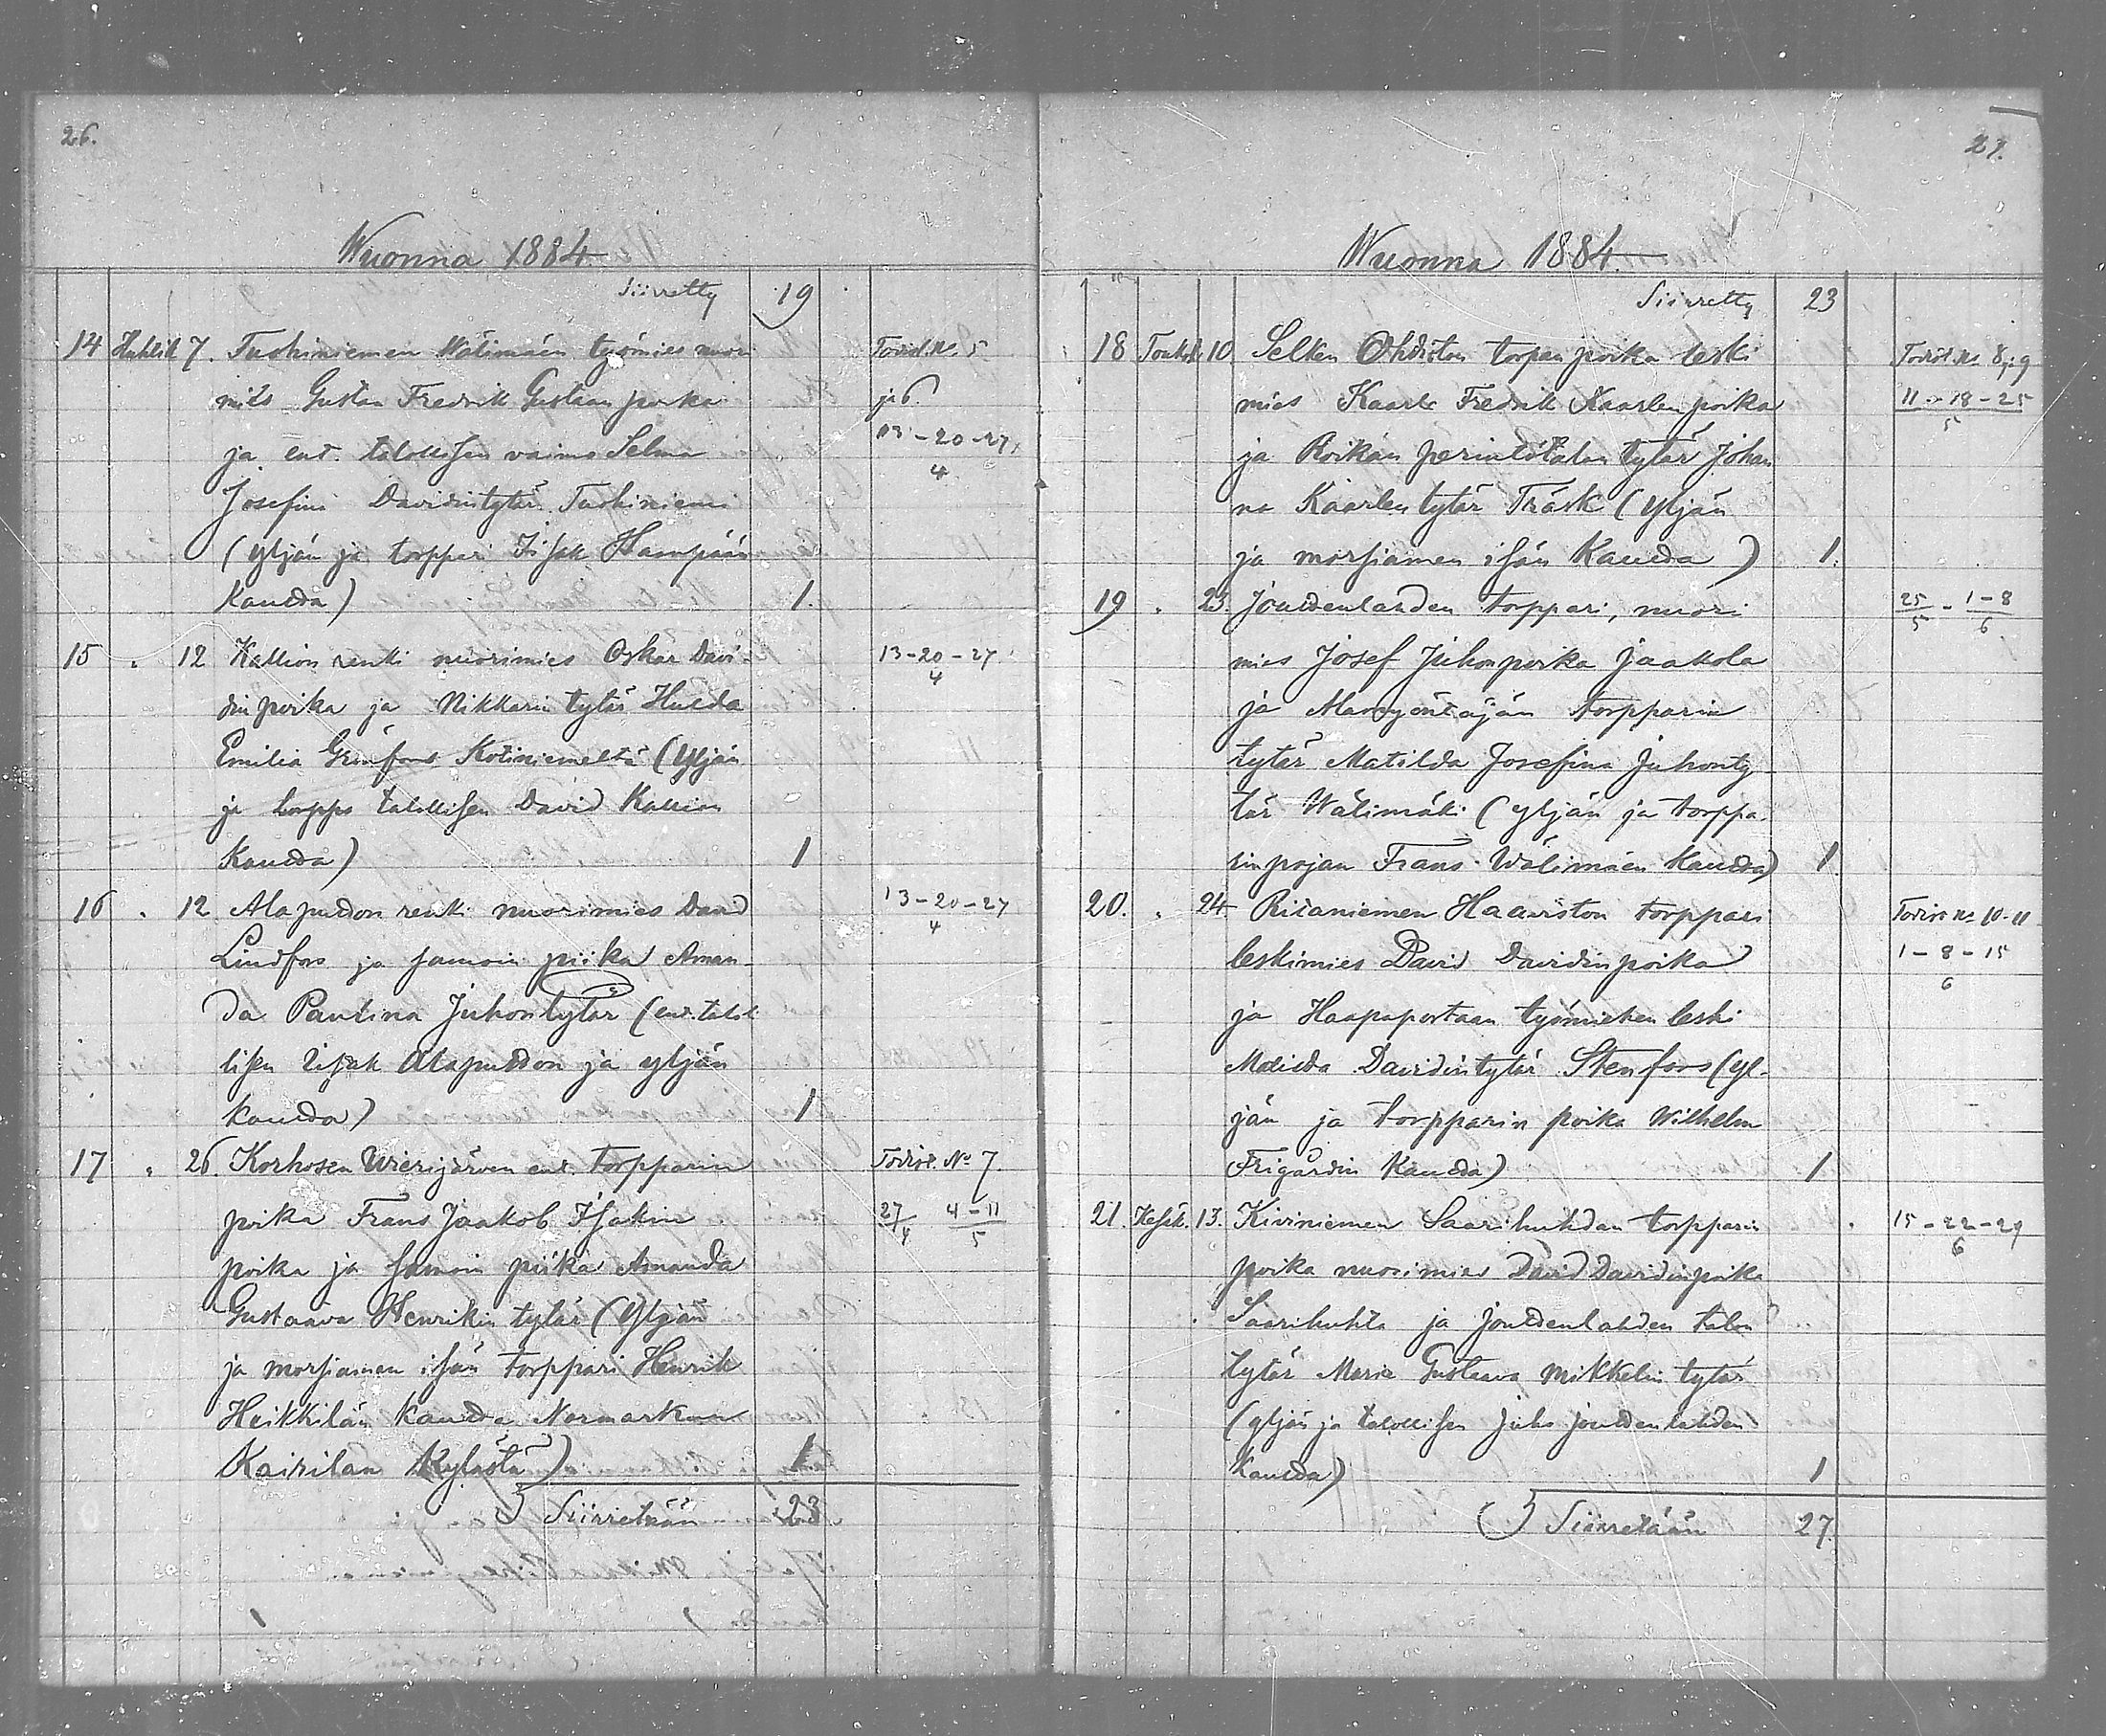 26.
Wuonna 1884.
Siirretty 19
14 Huhtik 7. Tuohiniemen Wälimäen työmies nuori Todist. No. 5
mies Gustaa Fredrik Gustaan poika ja 6.
ja ent. talollisen vaimo Selma 13-20-27
Josefina Davidintytär Tuohiniemi 4
(yljän ja torppari Isak Haanpään
kautta) 1.
15 " 12 Kallion renki nuorimies Oskar Davi- 13-20-27
din poika ja Nikkarin tytär Hulda 4
Emilia Grönfors Kotiniemeltä (Yljän
ja lamppo talollisen David Kallion
kautta) 1
16 " 12 Alapuudon renki nuorimies David 13-20-27
Lindfors ja samoin piika Aman- 4
da Pauliina Juhontytär (ent. talol
lisen Isak Alapuudon ja yljän
kautta) 1
17 " 26. Korhosen Wierijärven ent. torpparin Todist. No 7.
poika Frans Jaakob Isakin 27/4 4-11/5
poika ja samoin piika Amanda
Gustaava Henrikin tytär (Yljän
ja morsiamen isän torppari Henrik
Heikkilän kautta Normarkun
Kairilan Kylästä) 1
Siirretään 23
27.
Wuonna 1884.
Siirretty 23
18 Toukok 10. Selken Ohdiston torpan poika leski Todist. No 8 ja 9
mies Kaarle Fredrik Kaarlen poika 11-18-25
ja Roikan perintötalon tytär Johan 5
na Kaarlen tytär Träsk (Yljän
ja morsiamen isän kautta) 1.
19 " 23. Jouttenlahden torppari, nuori 25/5 - 1-8/6
mies Josef Juhonpoika Jaakola
ja torpparin
tytär Matilda Josefina Juhonty
tär Wälimäki (yljän ja torppa-
rin pojan Frans Wälimäen kautta) 1.
20. " 24 Ritaniemen Haaviston torppari Todist No 10-11
leskimies David Davidinpoika 1-8-15
ja Haapaportaan työmiehen leski 6
Matilda Davidintytär Stenfors (yl-
jän ja torpparin poika Wilhelm
Frigårdin kautta) 1
21. Kesäk. 13. Kiviniemen Saarihuhdan torpparin 15-22-29
poika nuorimies David Davidinpoika 6
Saarihuhta ja Jouttenlahden talon
tytär Maria Gustaava Mikkelin tytär
(yljän ja talollisen Juho Jouttenlahden
kautta) 1
Siirretään 27.